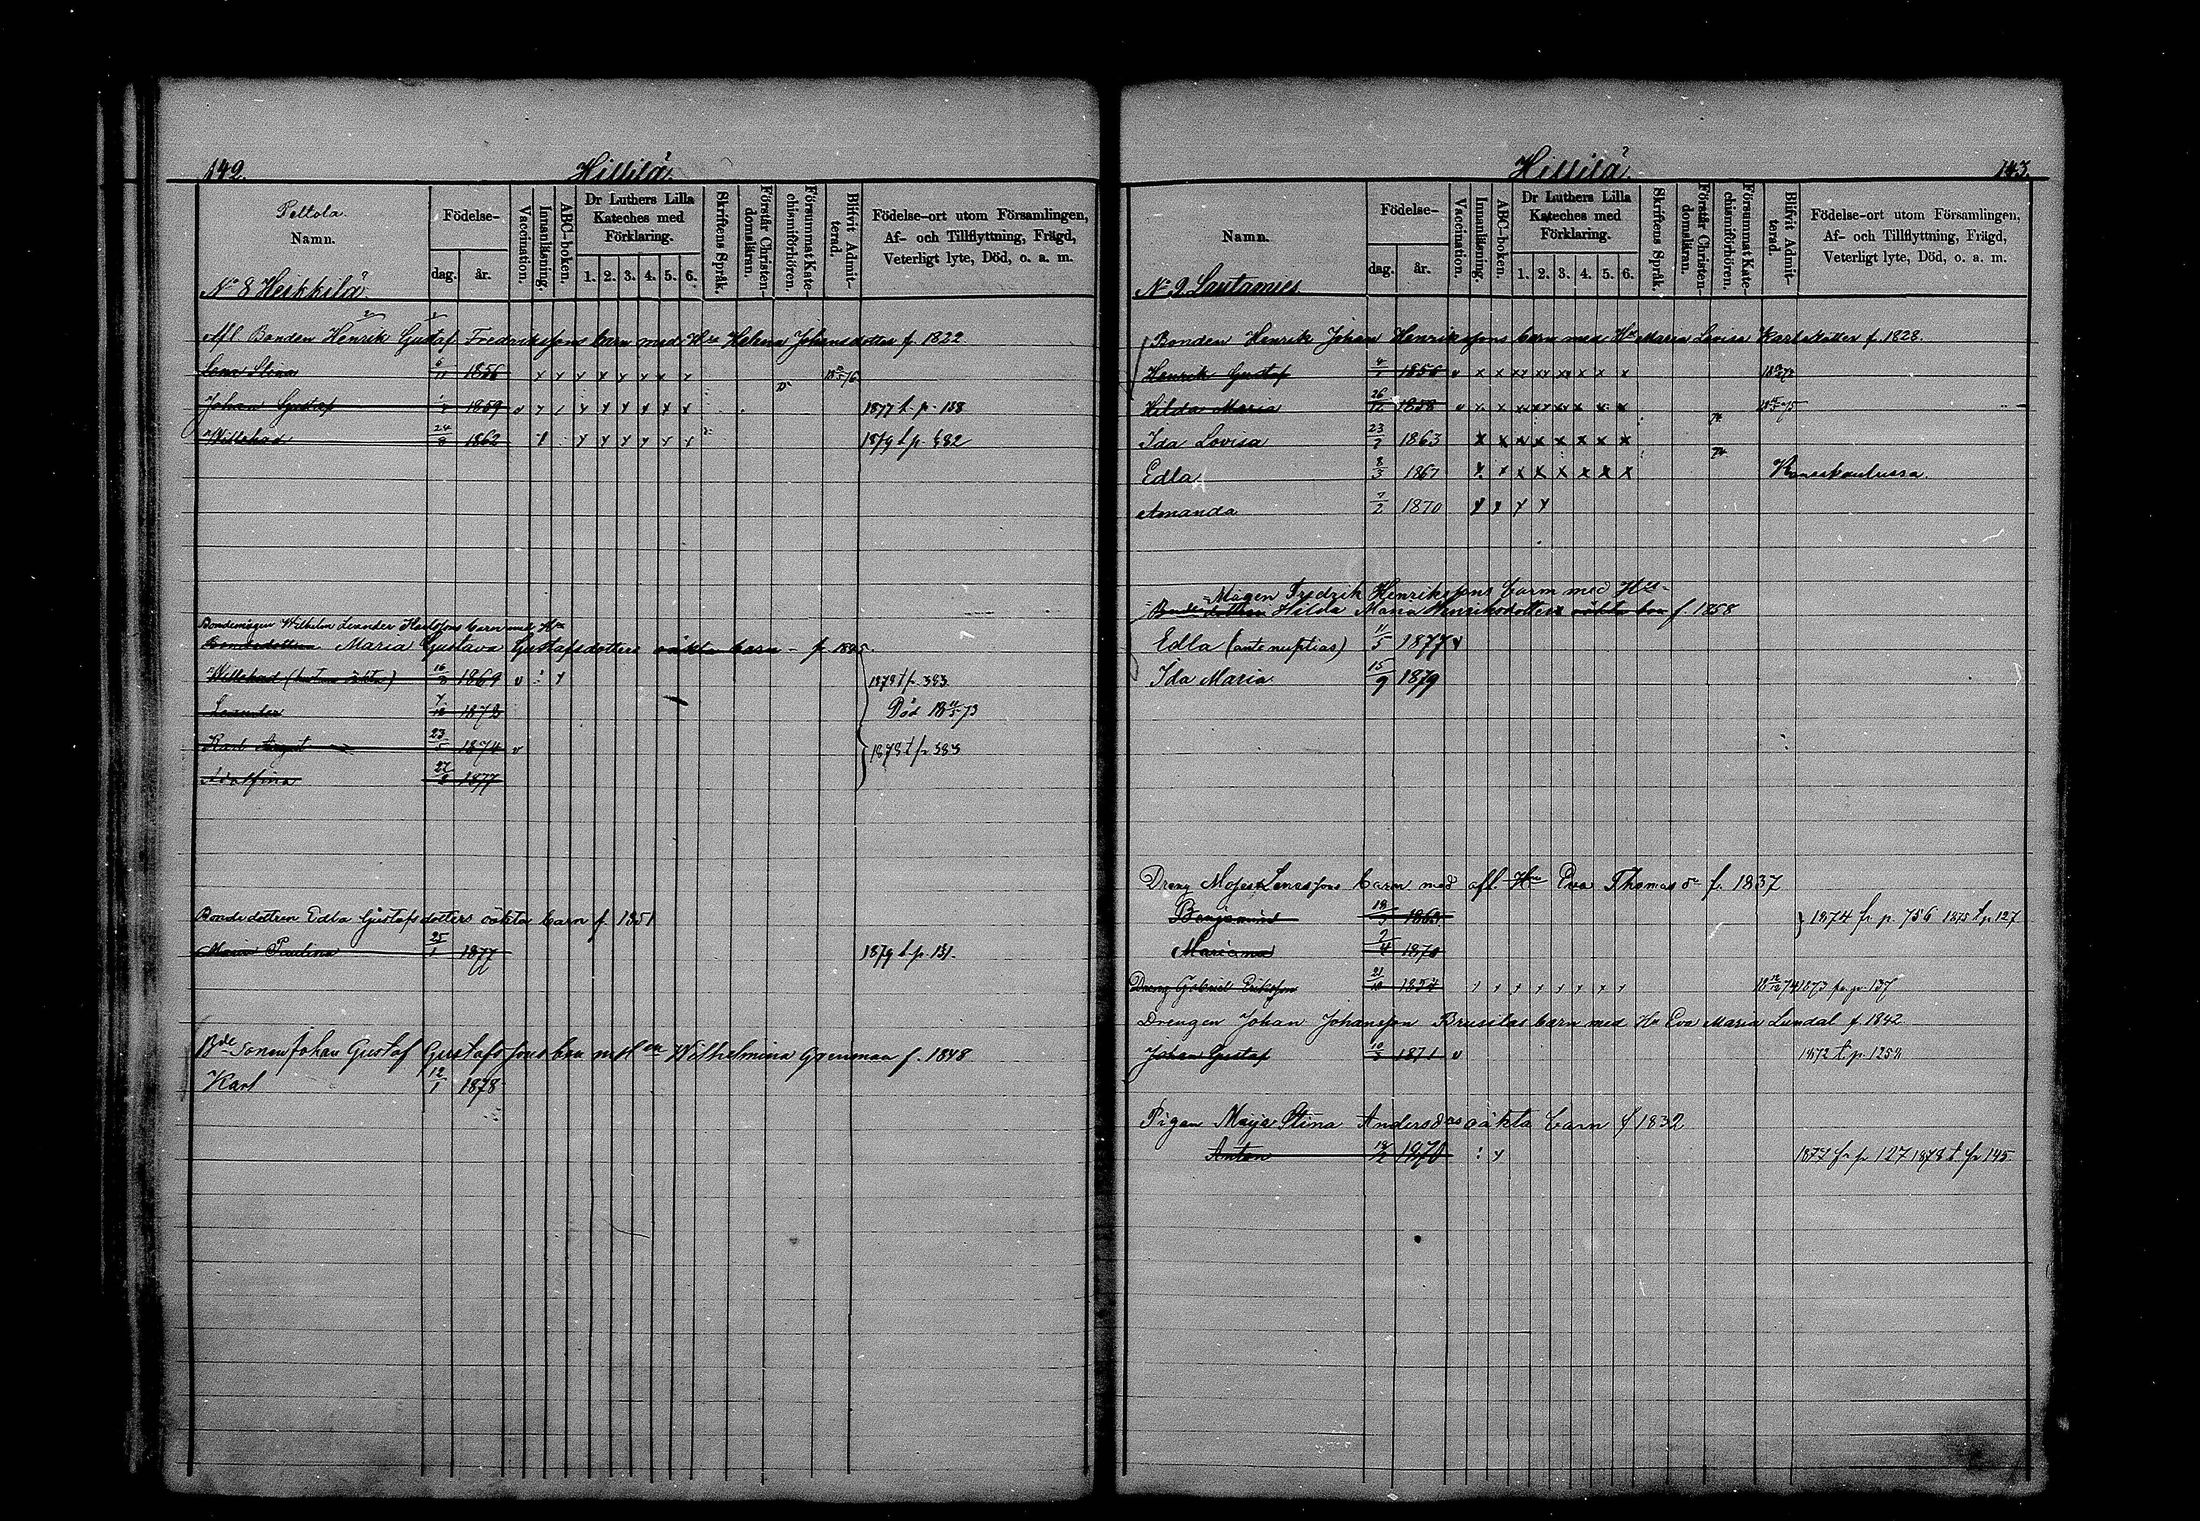 142.
Hillilä.
Peltola.
Namn.
Födelse-
dag. år.
Vaccination.
Innanläsning.
ABC-boken.
Dr Luthers Lilla
Kateches med
Förklaring.
1. 2. 3. 4. 5. 6.
Skriftens Språk.
Förstår Christen-
domsläran.
Försummat Kate-
chismiförhören.
Blifvit Admit-
terad.
Födelse-ort utom Församlingen,
Af- och Tillflyttning, Frägd,
Veterligt lyte, Död, o. a. m.
No 8 Heikkilä
Afl Bonden Henrik Gustaf Fredrikssons barn med Hru Helena Johansdotter f. 1822
Stina 1856
Johan Gustaf 1859 1877 t. p. 158
Willehad 24/8 1862 1879 t p. 482
Bondemågen Wilhelm Leander Karlssons barn med Hru
Bondedottern Maria Gustava Gustafsdotters oäkta barn f.
Willehad 16/3 1869 v 1878 t p. 383
Leander 7/12 1872 Död
Karl August 23/5 1874 v 1878 t p. 383
Adolfina 1877
Bondedottern Edla Gustafsdotters oäkta barn f. 1851
Maria Paulina 25/1 1877 1879 t. p. 131.
Bde Sonen Johan Gustaf Gustafssons bn m Wilhelmina f. 1848
Karl 12/1 1878
Hillilä.
143.
Namn.
Födelse-
dag. år.
Vaccination.
Innanläsning.
ABC-boken.
Dr Luthers Lilla
Kateches med
Förklaring.
1. 2. 3. 4. 5. 6.
Skriftens Språk.
Förstår Christen-
domsläran.
Försummat Kate-
chismiförhören.
Blifvit Admit-
terad.
Födelse-ort utom Församlingen,
Af- och Tillflyttning, Frägd,
Veterligt lyte, Död, o. a. m.
No 9 Lautamies
Bonden Henrik Johan Henrikssons barn med Hru Maria Lovisa Karlsdotter f. 1828.
Henrik Gustaf 1856 v
Hilda Maria 26/12 1858 v
Ida Lovisa 23/7 1863
Edla 8/3 1867
Amanda 7/2 1870
Mågen Fredrik Henrikssons barn med Hru
Bondedottren Hilda Maria Henriksdotters oäkta bn f. 1858
Edla (ante nuptias) 11/5 1877 v
Ida Maria 15/9 1879
Dreng Moses barn med afl Hru Eva Thomas dr f. 1837
Benjamin 1863 1874 fr p. 756 1875 t p. 127
Mariana 2/4 1870
Dreng Gabriel Eriksson 1854 1873 fr. p. 137
Drengen Johan Johansson Brusilas barn med Hu Eva Maria Lundal f. 1842
Johan Gustaf 10/3 1871 v 1872 t. p.
Pigan Maja Stina Andersdrs oäkta barn f 1832
Anton 1870 1877 fr p 127 1878 t p 145